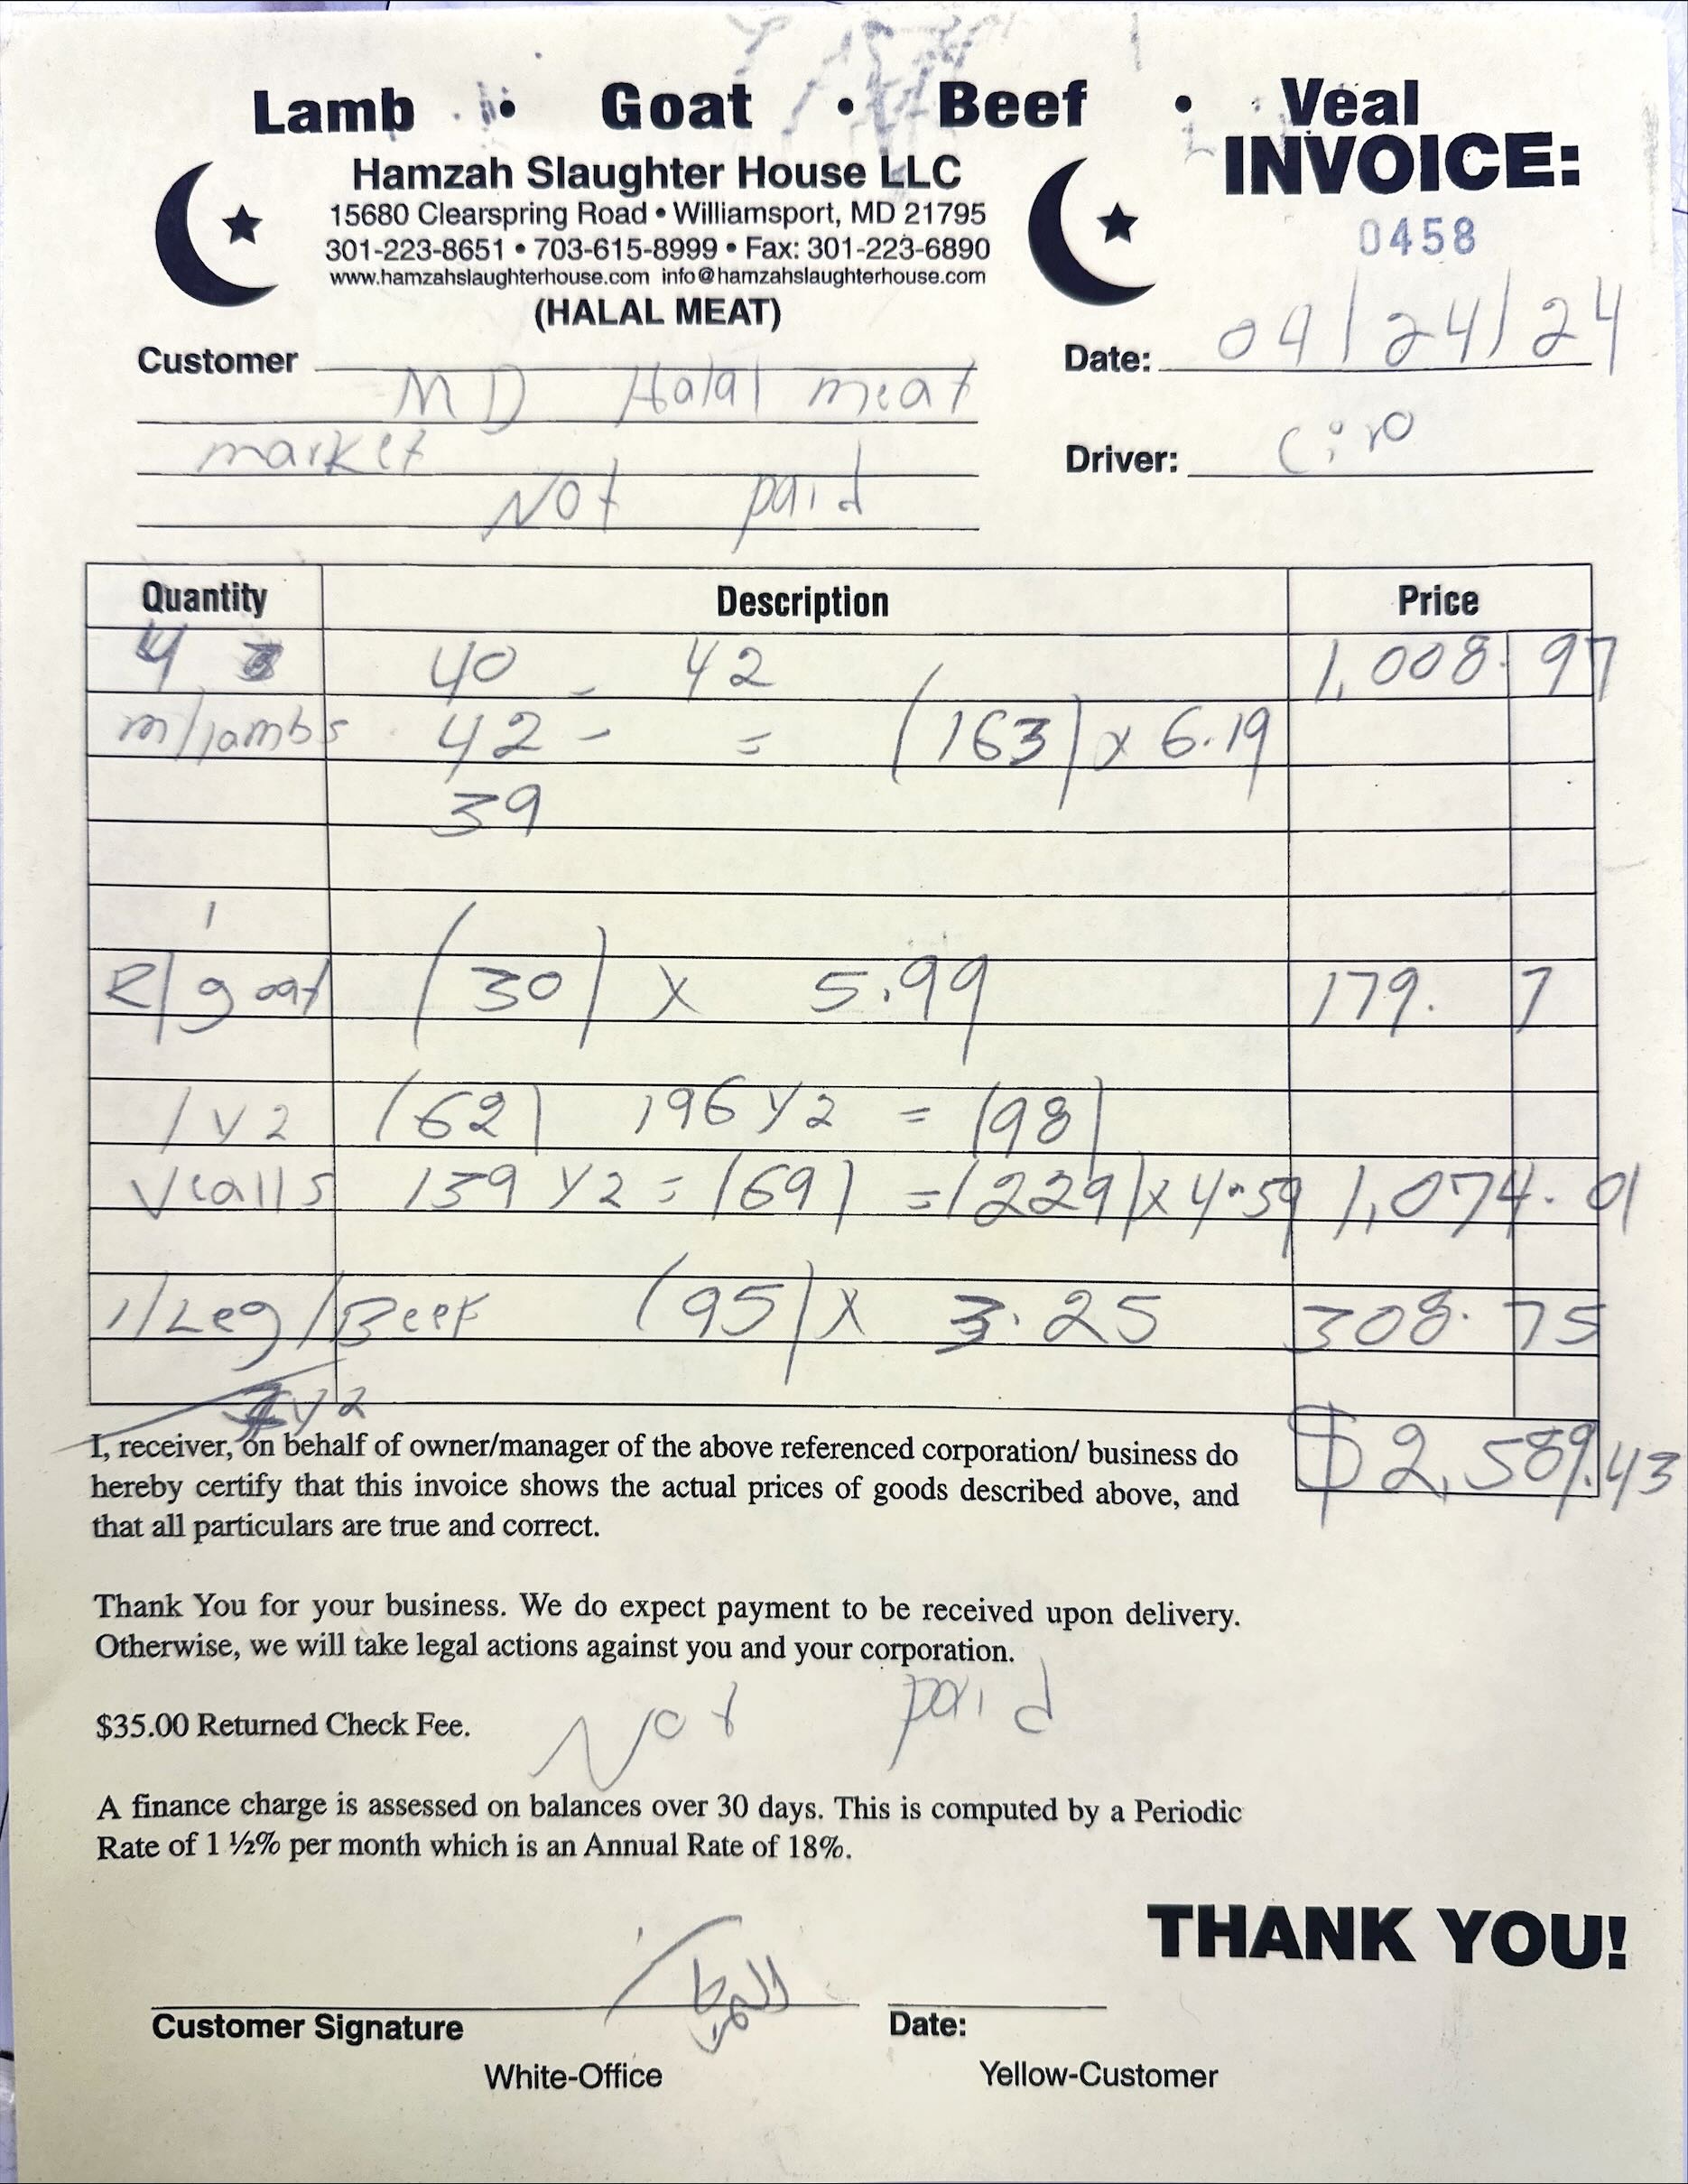 Lamb • Goat • Beef • Veal
INVOICE:
Hamzah Slaughter House LLC
15680 Clearspring Road • Williamsport, MD 21795
301-223-8651 • 703-615-8999 • Fax: 301-223-6890
www.hamzahslaughterhouse.com info@hamzahslaughterhouse.com
(HALAL MEAT)
0458
Date: 04/24/24
Customer MD Halal meat
market
Driver: Ciro
Not paid
Quantity Description Price
4 40 - 42 1,008. 97
m/lambs 42 - = (163) x 6.19
39
1
R/goat (30) x 5.99 179. 7
1 y 2 (62) 196 y 2 = (98)
Vealls 139 y 2 = (69) = (229) x 4.59 1,074. 01
1/Leg/Beef (95) x 3.25 308. 75
y 2
$2,589.43
I, receiver, on behalf of owner/manager of the above referenced corporation/ business do
hereby certify that this invoice shows the actual prices of goods described above, and
that all particulars are true and correct.
Thank You for your business. We do expect payment to be received upon delivery.
Otherwise, we will take legal actions against you and your corporation.
Not paid
$35.00 Returned Check Fee.
A finance charge is assessed on balances over 30 days. This is computed by a Periodic
Rate of 1 ½% per month which is an Annual Rate of 18%.
THANK YOU!
Customer Signature Date:
White-Office Yellow-Customer